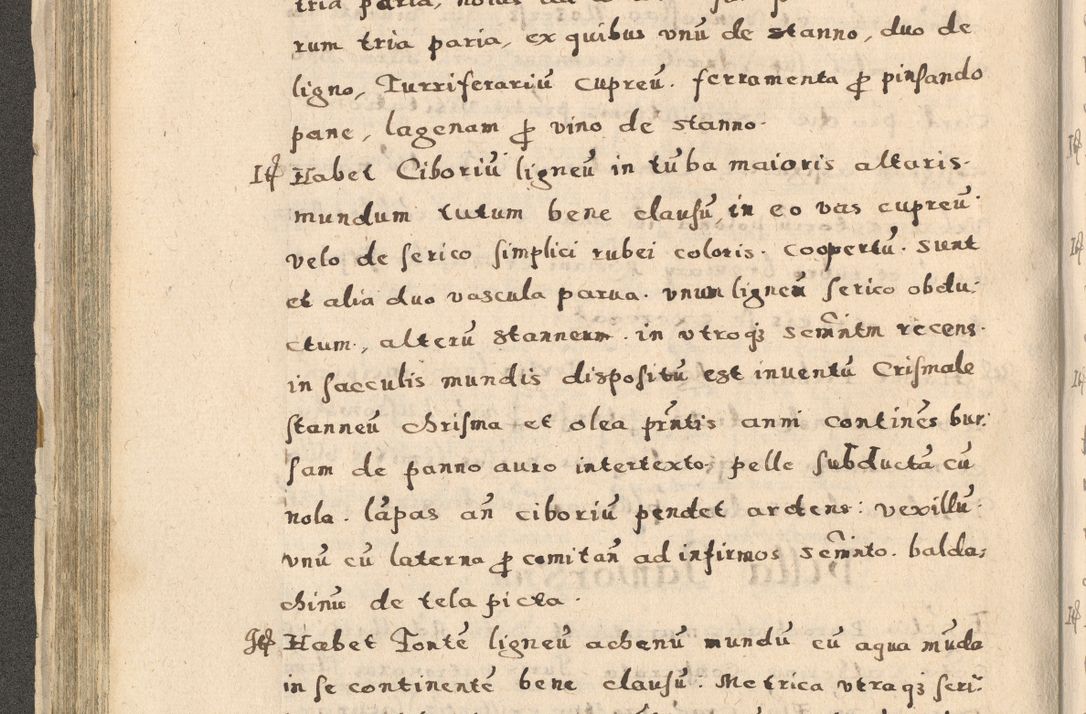 tria paria,
rum tria paria, ex quibus vnũ de stanno, duo de
ligno, Turriferariũ cupreũ. ferramenta ꝓ pinsando
pane, lagenam ꝓ vino de stanno.
Itẽ Habet Ciboriũ ligneũ in tũba maioris altaris.
mundum tutum bene clausũ, in eo vas cupreũ.
velo de serico simplici rubei coloris. coopertũ. sunt
et alia duo vascula parua. vnum ligneũ serico obdu:
ctum, alterũ stanneum. in vtroq; scm̃ntm recens.
in sacculis mundis dispositũ est inuentũ Crismale
stanneũ chrisma et olea pr̃ntis anni continẽs bur:
sam de panno auro intertexto, pelle subductã cũ
nola. lãpas añ ciboriũ pendet ardens: vexillũ
vnũ cũ laterna ꝓ comitañ ad infirmos scm̃nto. balda:
chinũ de tela picta.
Itẽ Habet Fontẽ ligneũ achenũ mundũ cũ aqua mũda
in se continentẽ bene clausũ. Metrica vtraq; scri: